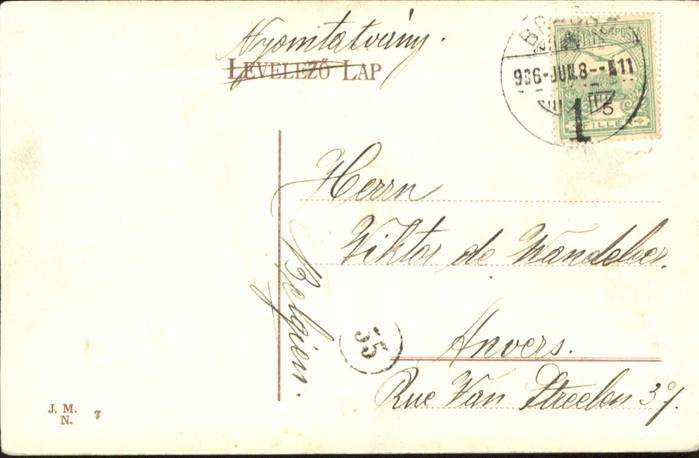 Nyomtatvány.
LEVELEZŐ LAP
936-JUN.8--11
5
FILLÉR
1
Herrn
Viktor de
Anvers.
Rue Van Streelen 37.
Belgien.
55
J. M.
N. 7